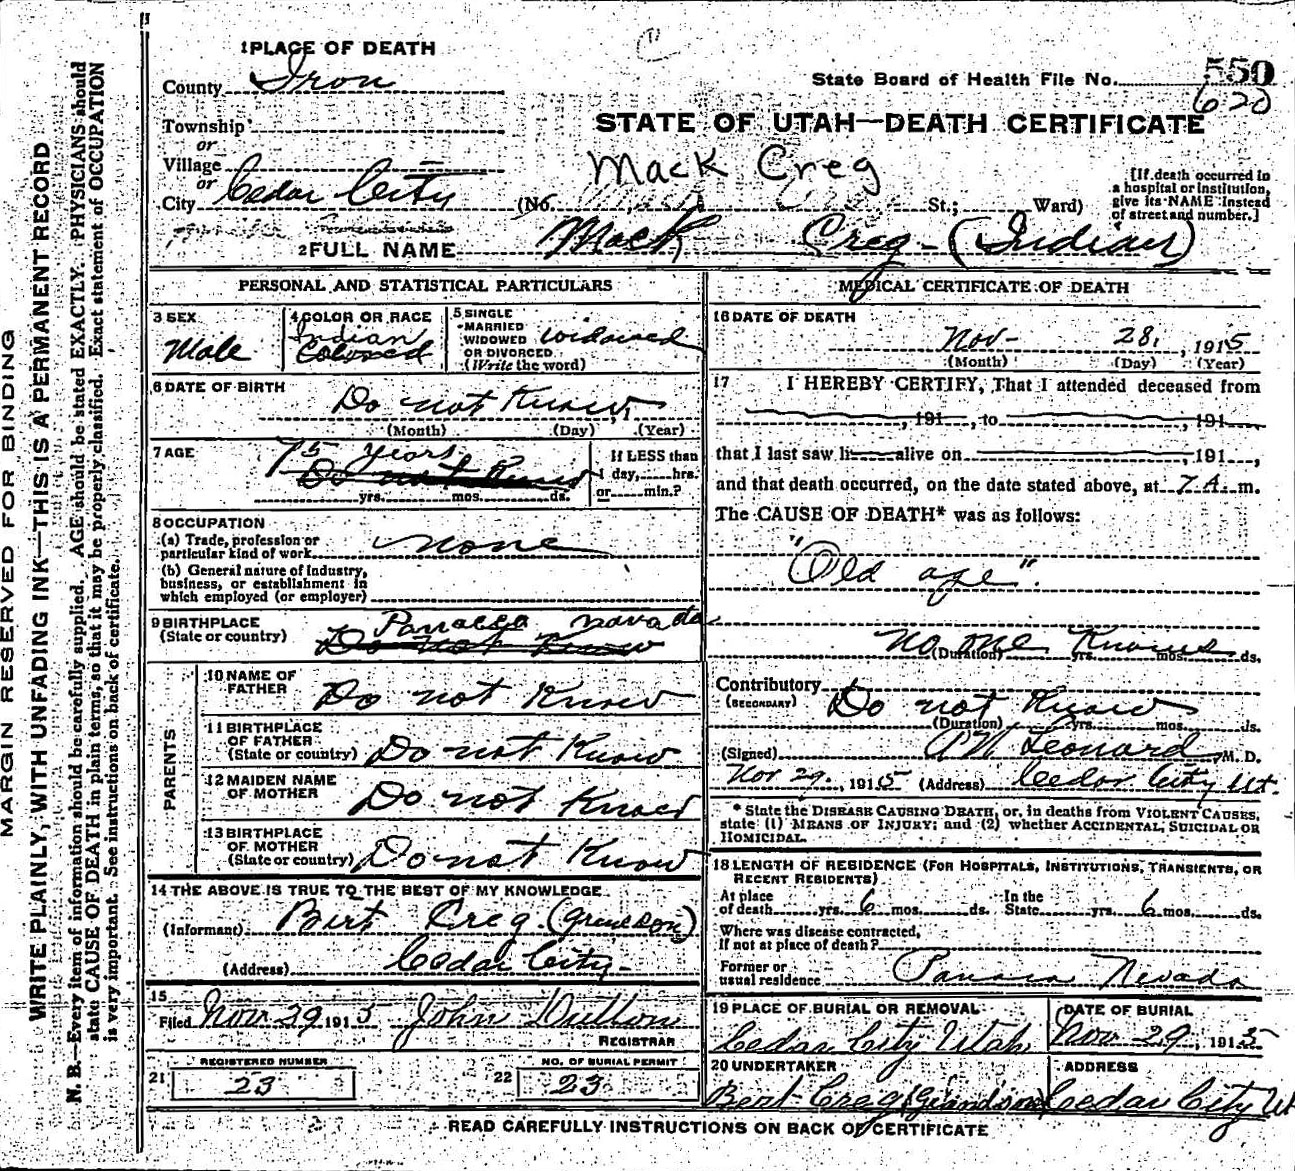 1 PLACE OF DEATH
County Iron
State Board of Health File No. 550
620
Township
or
STATE OF UTAH—DEATH CERTIFICATE
Village
or
Mack Creg
City Cedar City (No. St.; Ward)
[If death occurred in a hospital or institution, give its NAME instead of street and number.]
2 FULL NAME Mack Creg - (Indian)
PERSONAL AND STATISTICAL PARTICULARS
3 SEX
Male
4 COLOR OR RACE
Indian
Colored
5 SINGLE
MARRIED
WIDOWED
OR DIVORCED
(Write the word)
Widowed
6 DATE OF BIRTH
Do not Know
(Month) (Day) (Year)
7 AGE
75 years
Do not Know
yrs. mos. ds.
If LESS than
1 day, hrs.
or min.?
8 OCCUPATION
(a) Trade, profession or
particular kind of work none
(b) General nature of industry,
business, or establishment in
which employed (or employer)
9 BIRTHPLACE
(State or country)
Panacca Navada
Do not Know
PARENTS
10 NAME OF
FATHER Do not Know
11 BIRTHPLACE
OF FATHER
(State or country) Do not Know
12 MAIDEN NAME
OF MOTHER Do not Know
13 BIRTHPLACE
OF MOTHER
(State or country) Do not Know
14 THE ABOVE IS TRUE TO THE BEST OF MY KNOWLEDGE
(Informant) Bert Creg (Grandson)
(Address) Cedar City -
15
Filed Nov 29 1915 John
REGISTRAR
21 REGISTERED NUMBER
23
22 NO. OF BURIAL PERMIT
23
MEDICAL CERTIFICATE OF DEATH
16 DATE OF DEATH
Nov - 28, , 1915
(Month) (Day) (Year)
17 I HEREBY CERTIFY, That I attended deceased from
, 191 , to , 191
that I last saw h alive on , 191 ,
and that death occurred, on the date stated above, at 7 A. m.
The CAUSE OF DEATH* was as follows:
"Old age".
No one Knows
(Duration) yrs. mos. ds.
Contributory
(SECONDARY) Do not Know
(Duration) yrs. mos. ds.
(Signed) Leonard M. D.
Nov 29. , 1915 (Address) Cedar City Ut.
* State the DISEASE CAUSING DEATH, or, in deaths from VIOLENT CAUSES,
state (1) MEANS OF INJURY; and (2) whether ACCIDENTAL, SUICIDAL OR
HOMICIDAL.
18 LENGTH OF RESIDENCE (FOR HOSPITALS, INSTITUTIONS, TRANSIENTS, OR
RECENT RESIDENTS)
At place
of death yrs. 6 mos. ds. In the
State yrs. 6 mos. ds.
Where was disease contracted,
if not at place of death?
Former or
usual residence Panaca Nevada
19 PLACE OF BURIAL OR REMOVAL
Cedar City Utah
DATE OF BURIAL
Nov 29 , 1915
20 UNDERTAKER
Bert Creg (Grandson)
ADDRESS
Cedar City Ut
READ CAREFULLY INSTRUCTIONS ON BACK OF CERTIFICATE
MARGIN RESERVED FOR BINDING
WRITE PLAINLY, WITH UNFADING INK—THIS IS A PERMANENT RECORD
N. B.—Every item of information should be carefully supplied. AGE should be stated EXACTLY. PHYSICIANS should
state CAUSE OF DEATH in plain terms, so that it may be properly classified. Exact statement of OCCUPATION
is very important. See instructions on back of certificate.